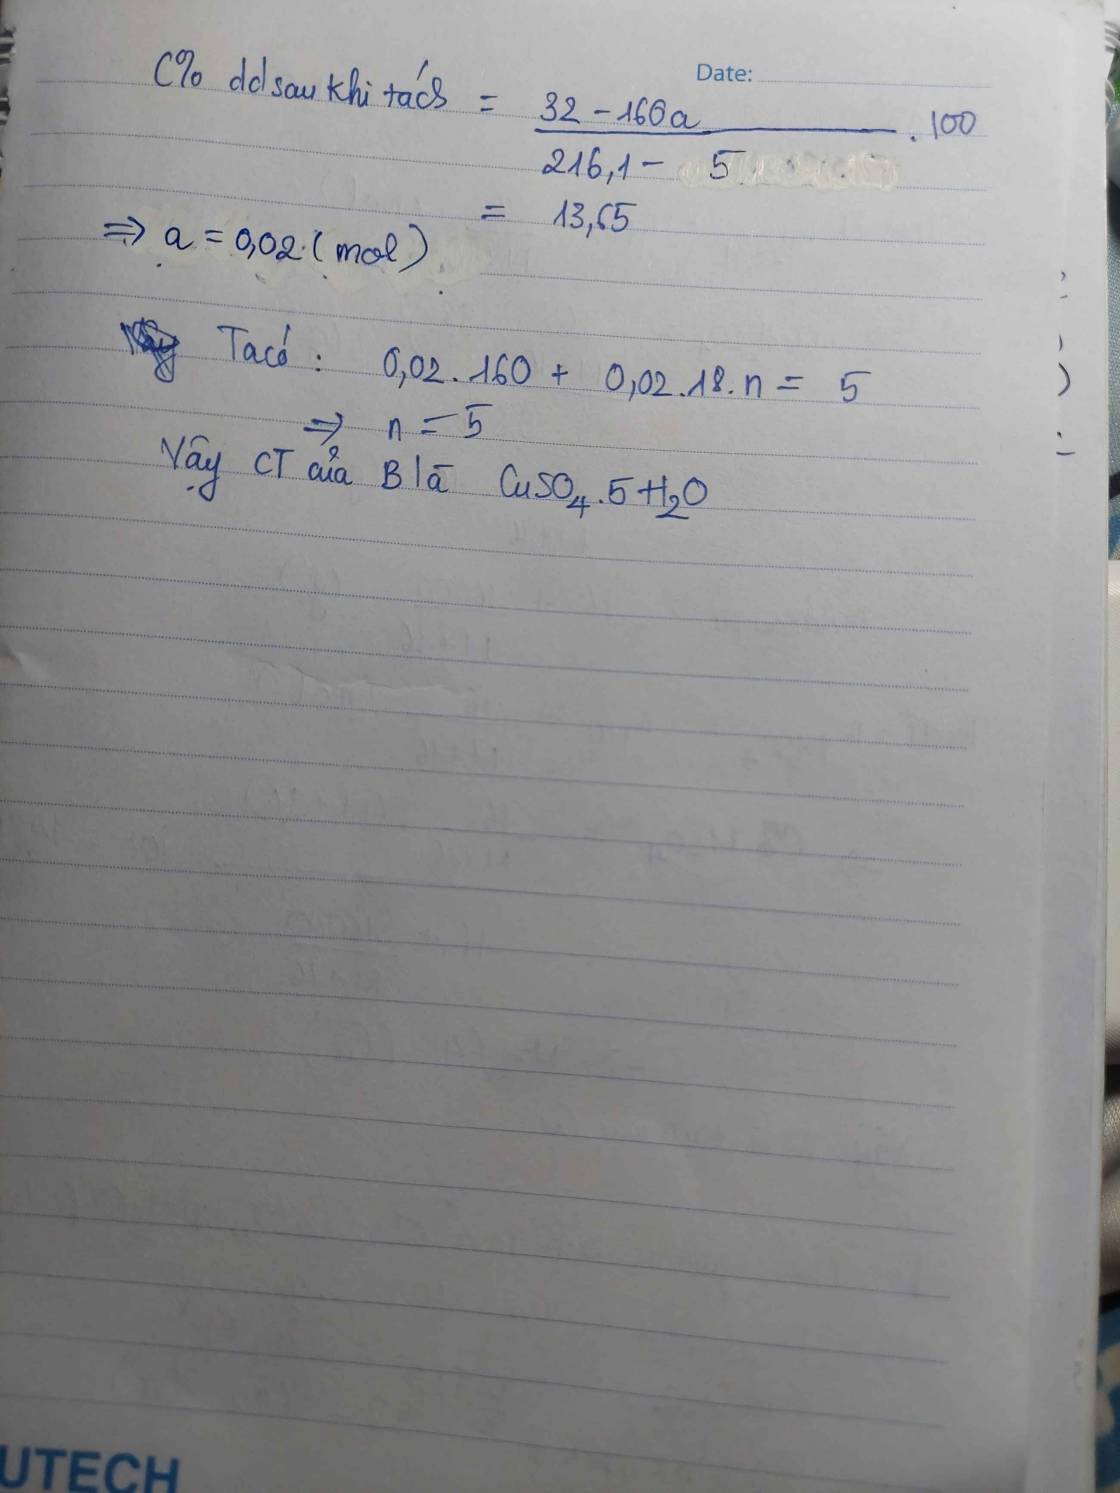 Date:
C% dd sau khi tách = 32 - 160a / 216,1 - 5 . 100
= 13,65
=> a = 0,02 (mol)
Ta có : 0,02 . 160 + 0,02 . 18 . n = 5
=> n = 5
Vậy CT của B là CuSO4 . 5H2O
UTECH